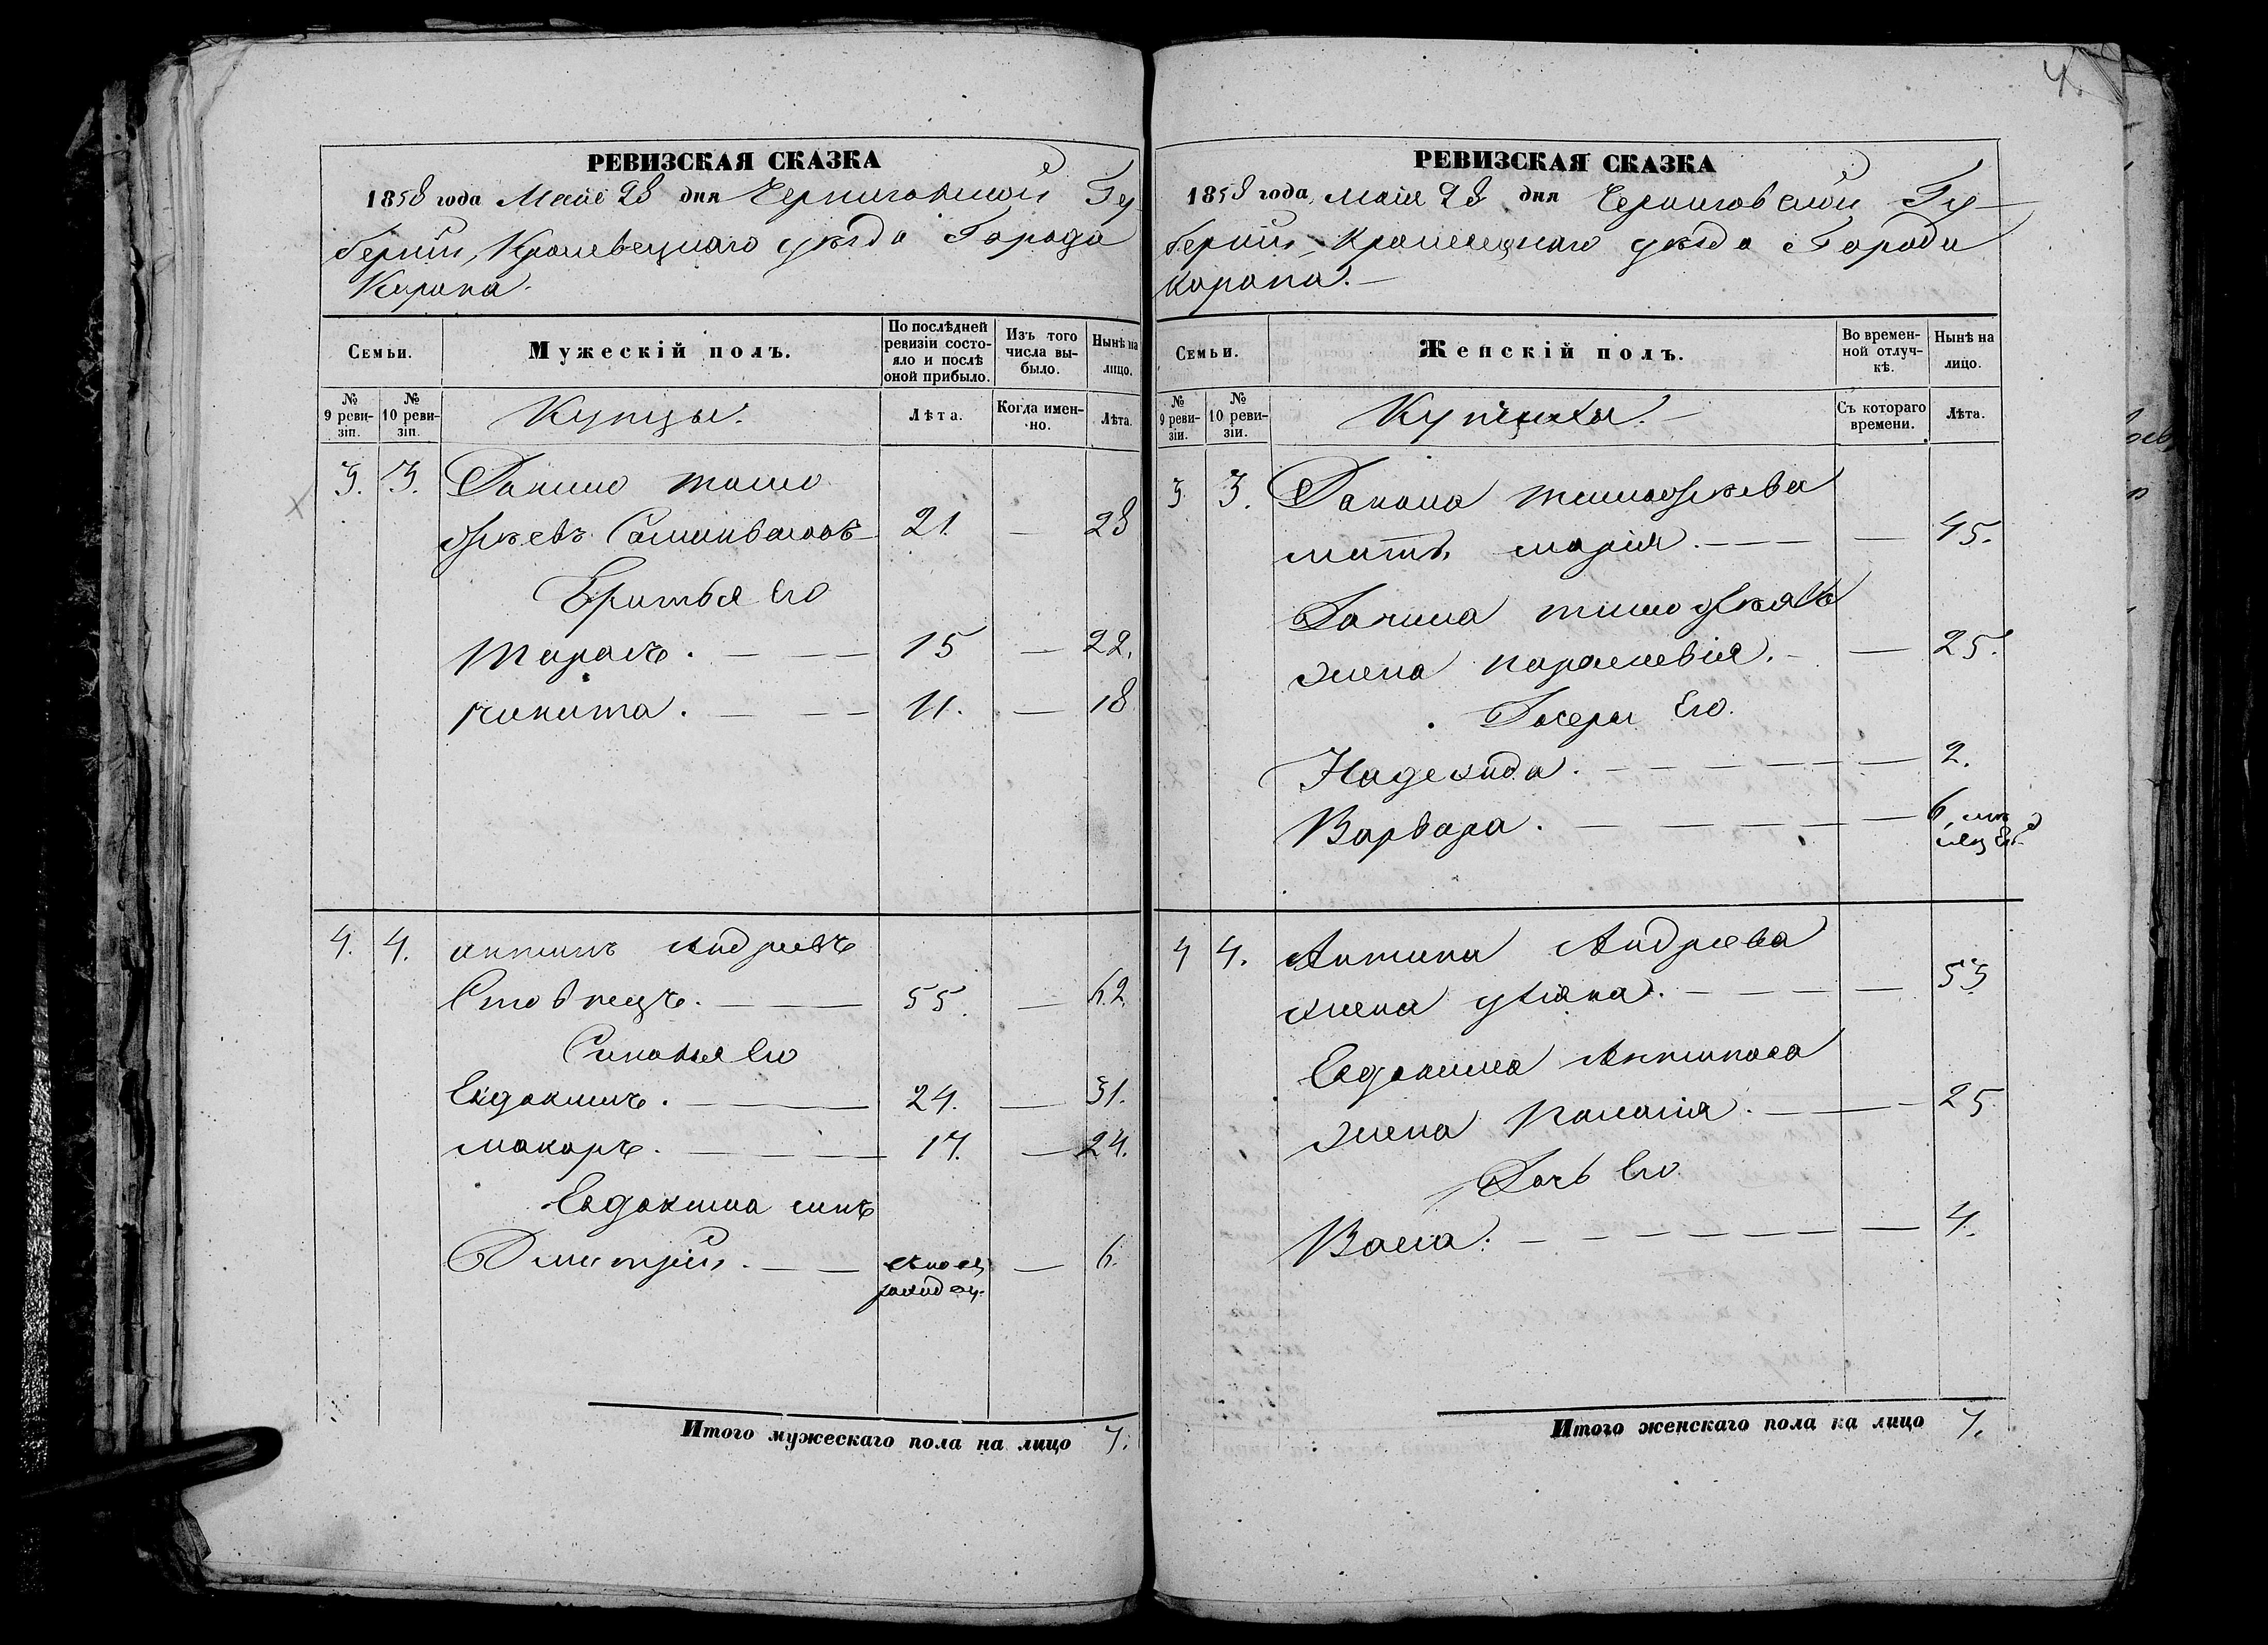 РЕВИЗСКАЯ СКАЗКА
1858 года Маія 28 дня Черниговской Гу-
берніи, Кролевецкаго уѣзда Города
Коропа.
Семьи.
Мужескій полъ.
По послѣдней ревизіи состояло и послѣ оной прибыло.
Изъ того числа выбыло.
Нынѣ на лицо.
№ 9 ревизіи.
№ 10 ревизіи.
Купцы.
Лѣта.
Когда именно.
Лѣта.
3. 3. Данило Тимо
фѣевъ 21. — 28
Братья Его
Тарасъ. — — — 15 — 22.
Никита. — — — 11. — 18
4. 4. Антипъ Андреевъ
55. — 62
Сыновья Его
Евдокимъ. — — 24. — 31.
Макаръ. — — — 17. — 24.
Евдокима сынъ
Дмитрій. — — послѣ рожден. — 6.
Итого мужескаго пола на лицо 7.
4.
РЕВИЗСКАЯ СКАЗКА
1858 года, Маія 28 дня Черниговской Гу-
берніи, Кролевецкаго уѣзда Города
Коропа. —
Семьи.
Женскій полъ.
Во временной отлучкѣ.
Нынѣ на лицо.
№ 9 ревизіи.
№ 10 ревизіи.
Купцы. —
Съ котораго времени.
Лѣта.
3 3. Данила Тимофѣева
мать Марія. — — — — 45.
Данила Тимофѣева
жена Параскевія. — — 25.
Дочери Его.
Надежда. — — — — — 2.
Варвара. — — — — — 6, мѣ
сяцевъ
4 4. Антипа Андреева
жена Уліяна. — — — — 55
Евдокима Антипова
жена Палагія. — — — 25
Дочь Его
Васса. — — — — — 4.
Итого женскаго пола на лицо 7.